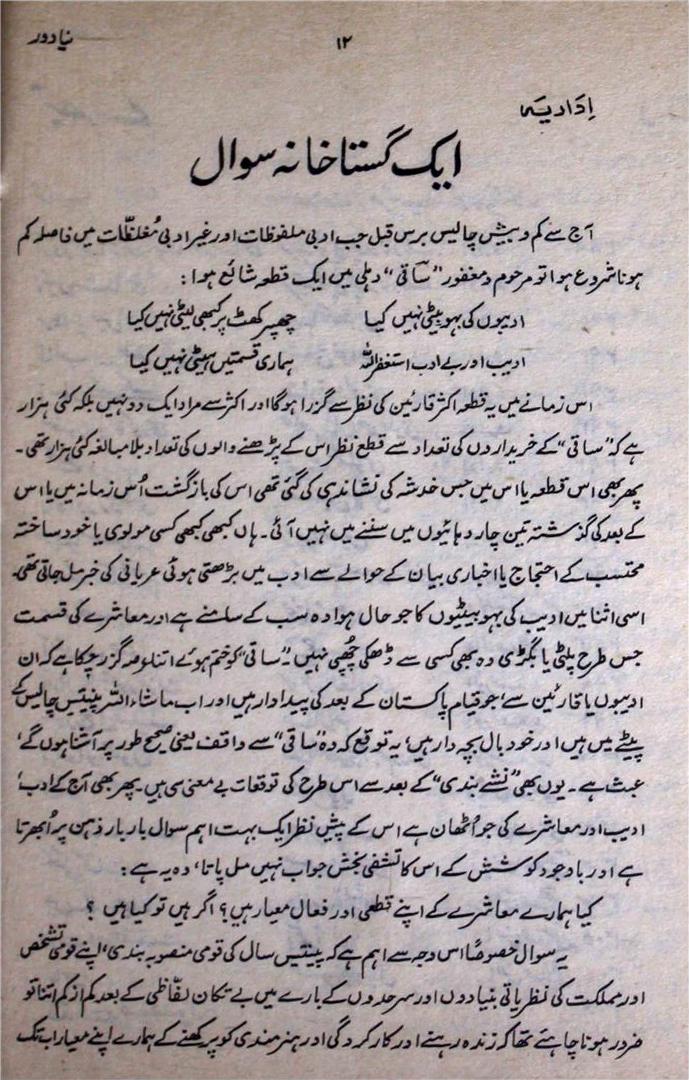 نیا دور
۱۲
اِداریہ
ایک گستاخانہ سوال
آج سے کم و بیش چالیس برس قبل جب ادبی ملفوظات اور غیر ادبی مُغلظّات میں فاصلہ کم
ہونا شروع ہوا تو مرحوم و مغفور "ساقی" دہلی میں ایک قطعہ شائع ہوا :
ادیبوں کی بہو بیٹی نہیں کیا چھپر کھٹ پر کبھی لیٹی نہیں کیا
ادیب اور بے ادب استغفر اللہ ہماری قسمتیں ہیٹی نہیں کیا
اس زمانے میں یہ قطعہ اکثر قارئین کی نظر سے گزرا ہوگا اور اکثر سے مراد ایک دو نہیں بلکہ کئی ہزار
ہے کہ "ساقی" کے خریداروں کی تعداد سے قطع نظر اس کے پڑھنے والوں کی تعداد بلا مبالغہ کئی ہزار تھی ۔
پھر بھی اس قطعہ یا اس میں جس خدشہ کی نشاندہی کی گئی تھی اس کی بازگشت اُس زمانہ میں یا اس
کے بعد کی گذشتہ تین چار دہائیوں میں سننے میں نہیں آئی ۔ ہاں کبھی کبھی کسی مولوی یا خود ساختہ
محتسب کے احتجاج یا اخباری بیان کے حوالے سے ادب میں بڑھتی ہوئی عریانی کی خبر مل جاتی تھی۔
اسی اثنا میں ادیب کی بہو بیٹیوں کا جو حال ہوا وہ سب کے سلمنے ہے اور معاشرے کی قسمت
جس طرح پلٹی یا بگڑی وہ بھی کسی سے ڈھکی چُھپی نہیں ۔ "ساقی" کو ختم ہوئے اتنا عرصہ گزر چکا ہے کہ ان
ادیبوں یا قارئین سے، جو قیام پاکستان کے بعد کی پیداوار ہیں اور اب ماشاء اللہ پینتیس چالیس کے
پیٹے میں ہیں اور خود بال بچہ دار ہیں، یہ توقع کہ وہ "ساقی" سے واقف یعنی صحیح طور پر آشنا ہوں گے،
عبث ہے ۔ یوں بھی "نشے بندی" کے بعد سے اس طرح کی توقعات بے معنی سی ہیں ۔ پھر بھی آج کے ادب،
ادیب اور معاشرے کی جو اُٹھان ہے اس کے پیش نظر ایک بہت اہم سوال بار بار ذہن پر اُبھرتا
ہے اور باوجود کوشش کے اس کا تشفی بخش جواب نہیں مل پاتا، وہ یہ ہے :
کیا ہمارے معاشرے کے اپنے قطعی اور فعال معیار ہیں ؟ اگر ہیں تو کیا ہیں ؟
یہ سوال خصوصاً اس وجہ سے اہم ہے کہ پینتیس سال کی قومی منصوبہ بندی، اپنے قومی تشخص
اور مملکت کی نظریاتی بنیادوں اور سرحدوں کے بارے میں بے تکان لفّاظی کے بعد کم از کم اتنا تو
ضرور ہونا چاہئے تھا کہ زندہ رہنے اور کارکردگی اور ہنرمندی کو پرکھنے کے ہمارے اپنے معیار اب تک